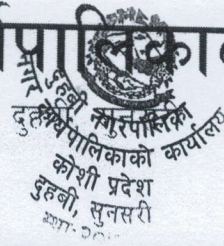 पालिका
दुहबी नगरपालिका
नगर कार्यपालिकाको कार्यालय
कोशी प्रदेश
दुहबी, सुनसरी